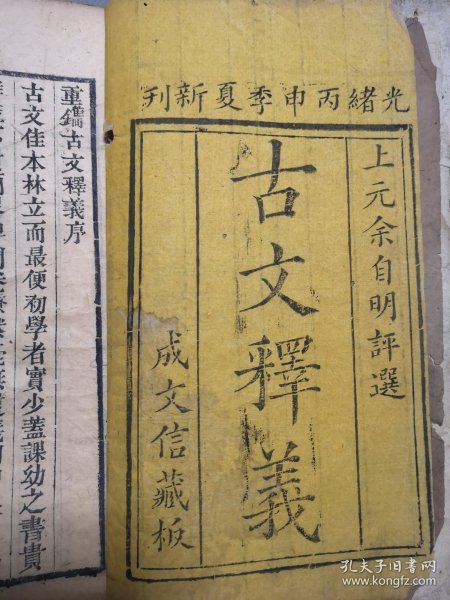 光緒丙申季夏新刊
上元余自明評選
古文釋義
成文信藏板
重鐫古文釋義序
古文佳本林立而最便初學者實少蓋課幼之書貴
孔夫子旧书网
https://www.kongfz.com/